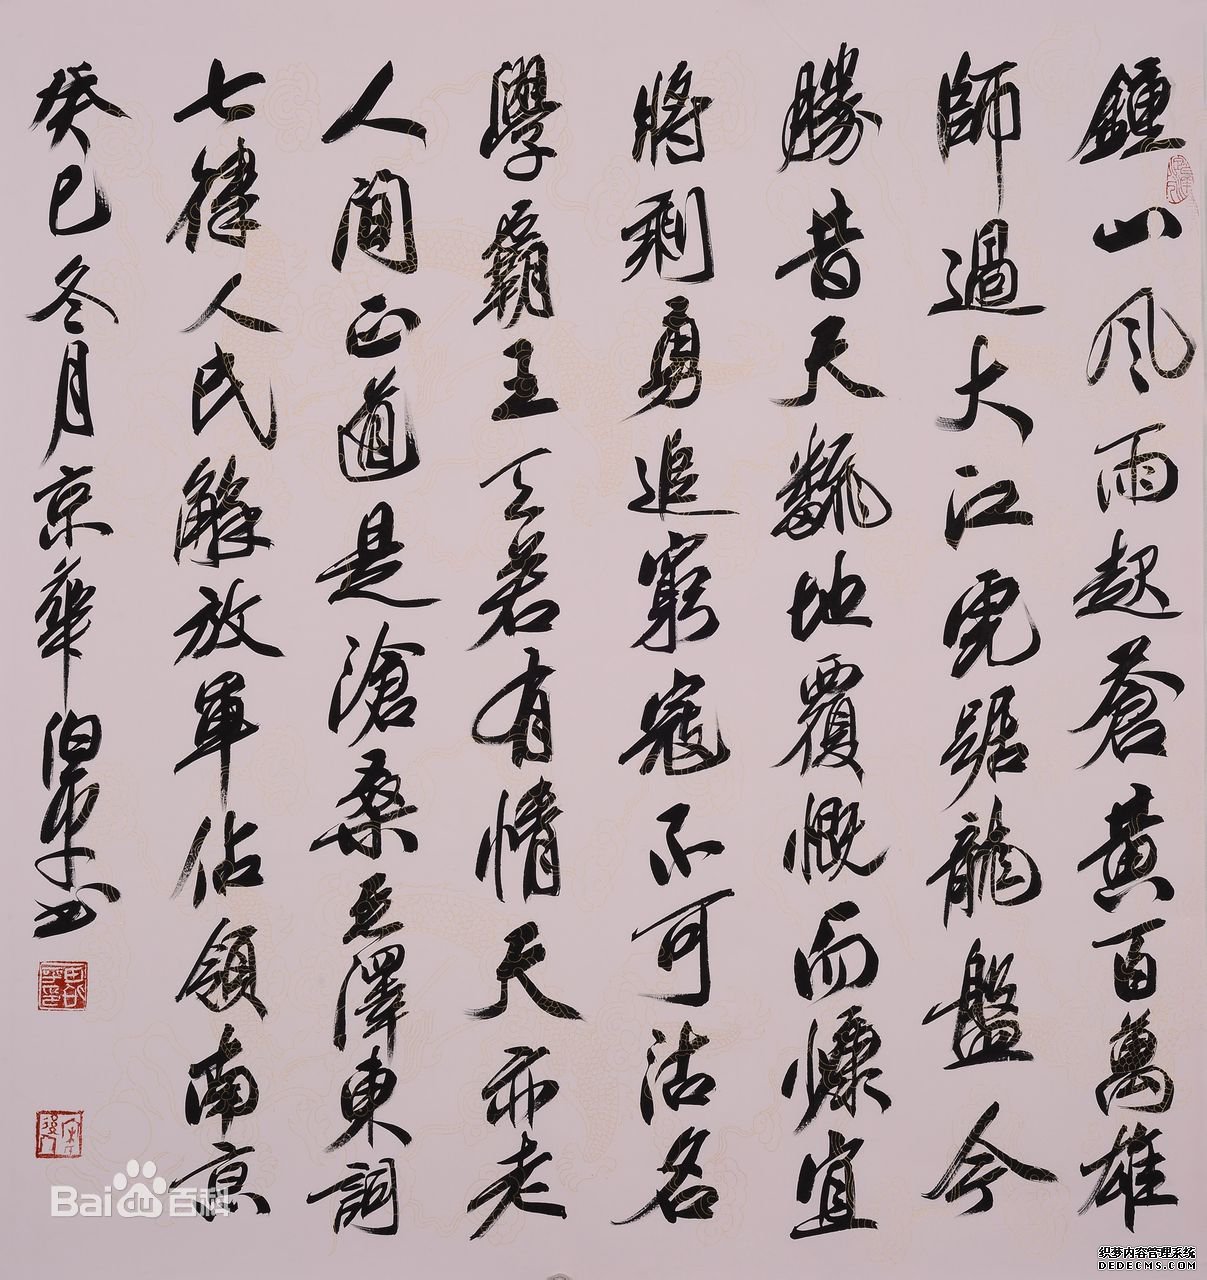 鍾山风雨起蒼黄百萬雄
師過大江虎踞龍盤今
勝昔天翻地覆慨而慷宜
將剩勇追窮寇不可沽名
學霸王天若有情天亦老
人間正道是滄桑毛澤東詞
七律人民解放軍佔領南京
癸巳冬月京華伯平书
田伯平印
Bai百科
织梦内容管理系统
DEDECMS.COM